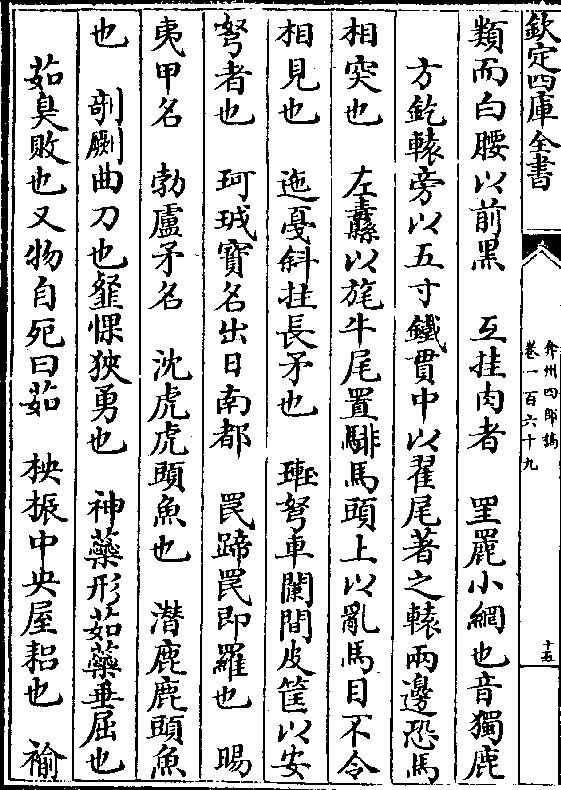 欽定四庫全書
弇州四部稿
卷一百六十九
十五
類而白腰以前黑　互挂肉者　罜罷小網也音獨鹿
方釳轅旁以五寸鐵貫中以翟尾著之轅兩邊恐馬
相突也　左纛以旄牛尾置騑馬頭上以亂馬目不令
相見也　迤戞斜挂長矛也　弩車闌間皮筐以安
弩者也　珂珬寶名出日南都　罠蹄罠即羅也　賜
夷甲名　勃盧矛名　沈虎虎頭魚也　潛鹿鹿頭魚
也　剞劂曲刀也　惈狹勇也　神蘂形茹蘂垂屈也
茹臭敗也又物自死曰茹　柍振中央屋梠也　褕